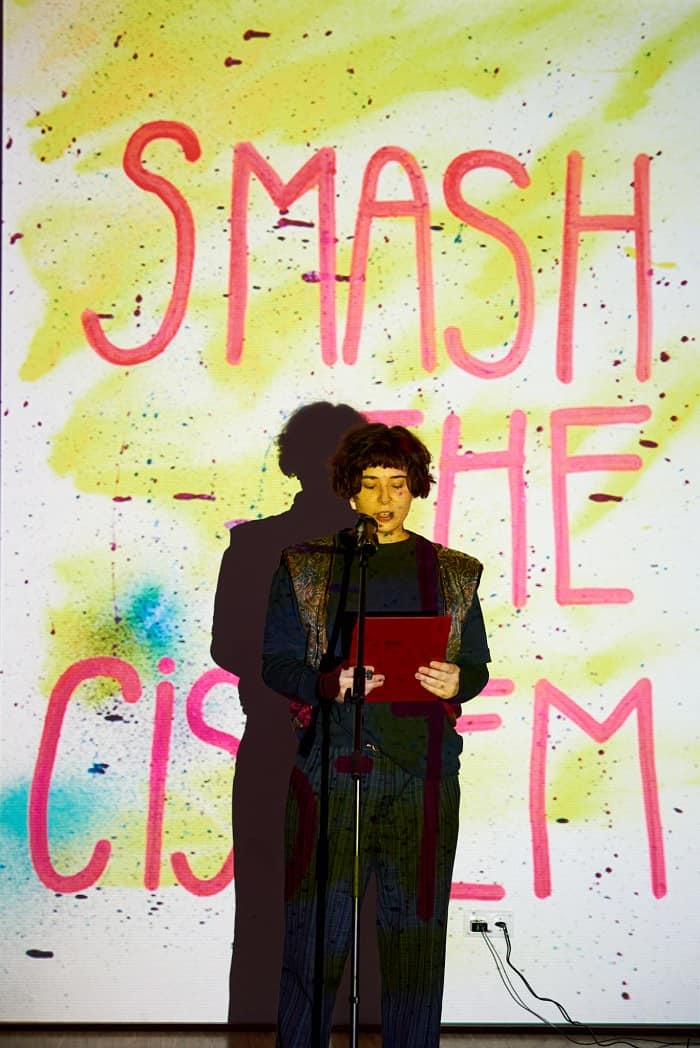 SMASH
THE
CiSTEM